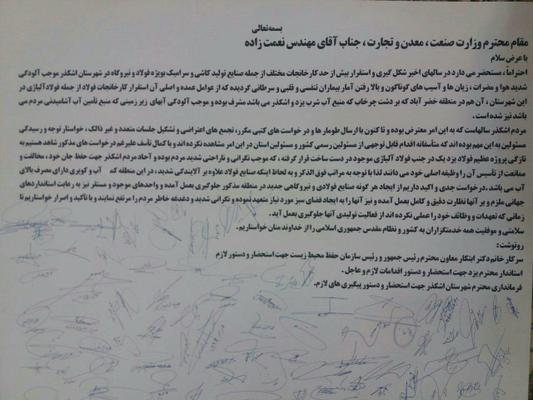 بسمه‌تعالی
مقام محترم وزارت صنعت ، معدن و تجارت ، جناب آقای مهندس نعمت زاده
با عرض سلام
احتراما ، مستحضر می دارد در سالهای اخیر شکل گیری و استقرار بیش از حد کارخانجات مختلف از جمله صنایع تولید کاشی و سرامیک بویژه فولاد و نیروگاه در شهرستان اشکذر موجب آلودگی
شدید هوا و مضرات ، زیان ها و آسیب های گوناگون و بالا رفتن آمار بیماران تنفسی و قلبی و سرطانی گردیده که از عوامل عمده و اصلی آن استقرار کارخانجات فولاد از جمله فولاد آلیاژی در
این شهرستان ، آن هم در منطقه خضر آباد که بر دشت چرخاب که منبع آب شرب یزد و اشکذر می باشد مشرف بوده و موجب آلودگی آبهای زیر زمینی که منبع تأمین آب آشامیدنی مردم می
باشد نیز شده است .
مردم اشکذر سالهاست که به این امر معترض بوده و تا کنون با ارسال طومار ها و در خواست های کتبی مکرر، تجمع های اعتراضی و تشکیل جلسات متعدد و غیر ذالک ، خواستار توجه و رسیدگی
مسئولین به این مهم بوده اند که متأسفانه اقدام قابل توجهی از مسئولین رسمی کشور و مسئولین استان در این امر مشاهده نکرده اند و با کمال تأسف علیرغم در خواست های مذکور شاهد هستیم به
تازگی پروژه عظیم فولاد یزد یک در جنب فولاد آلیاژی موجود در دست ساخت قرار گرفته ، که موجب نگرانی و ناراحتی شدید مردم بوده و آحاد مردم اشکذر جهت حفظ جان خود ، مخالفت و
ممانعت از تأسیس آن را وظیفه اصلی خود می دانند لذا با توجه به مراتب فوق الذکر و به لحاظ اینکه صنایع فولاد علاوه بر آلایندگی شدید ، در این منطقه که آب و کویری دارای مصرف بالای
آب می باشد .درخواست جدی و اکید داریم از ایجاد هر گونه صنایع فولادی و نیروگاهی جدید در منطقه مذکور جلوگیری بعمل آمده و واحدهای موجود و مستقر نیز به رعایت استانداردهای
جهانی ملزم و بر آنها نظارت دقیق و کامل بعمل آمده و نیز آنها را به ایجاد فضای سبز مورد نیاز متعهد نموده و نگرانی شدید و دغدغه خاطر مردم را مرتفع نمایند و با تأکید و اصرار خواستاریم تا
زمانی که تعهدات و وظائف خود را عملی نکرده اند از فعالیت تولیدی آنها جلوگیری بعمل آید .
سلامتی و موفقیت همه خدمتگزاران به کشور و نظام مقدس جمهوری اسلامی را از خداوند منان خواستاریم .
رونوشت :
سرکار خانم دکتر ابتکار معاون محترم رئیس جمهور و رئیس سازمان حفظ محیط زیست جهت استحضار و دستور لازم
استاندار محترم یزد جهت استحضار و دستور اقدامات لازم و عاجل .
فرمانداری محترم شهرستان اشکذر جهت استحضار و دستور پیگیری های لازم.